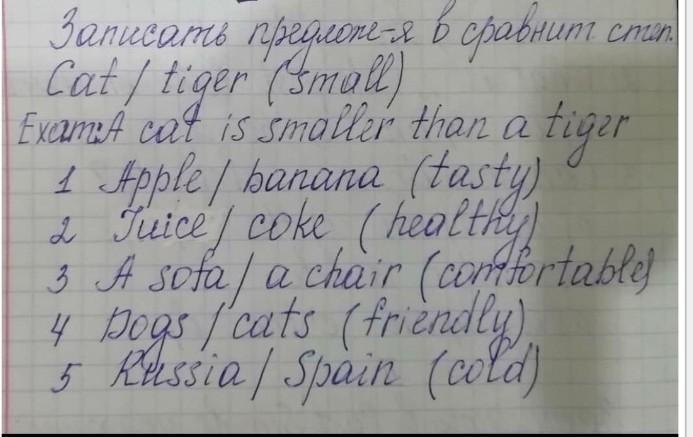 Записать предлож-я в сравнит степ.
Cat / tiger (small)
Exam: A cat is smaller than a tiger
1 Apple / banana (tasty)
2 Juice / coke (healthy)
3 A sofa / a chair (comfortable)
4 Dogs / cats (friendly)
5 Russia / Spain (cold)